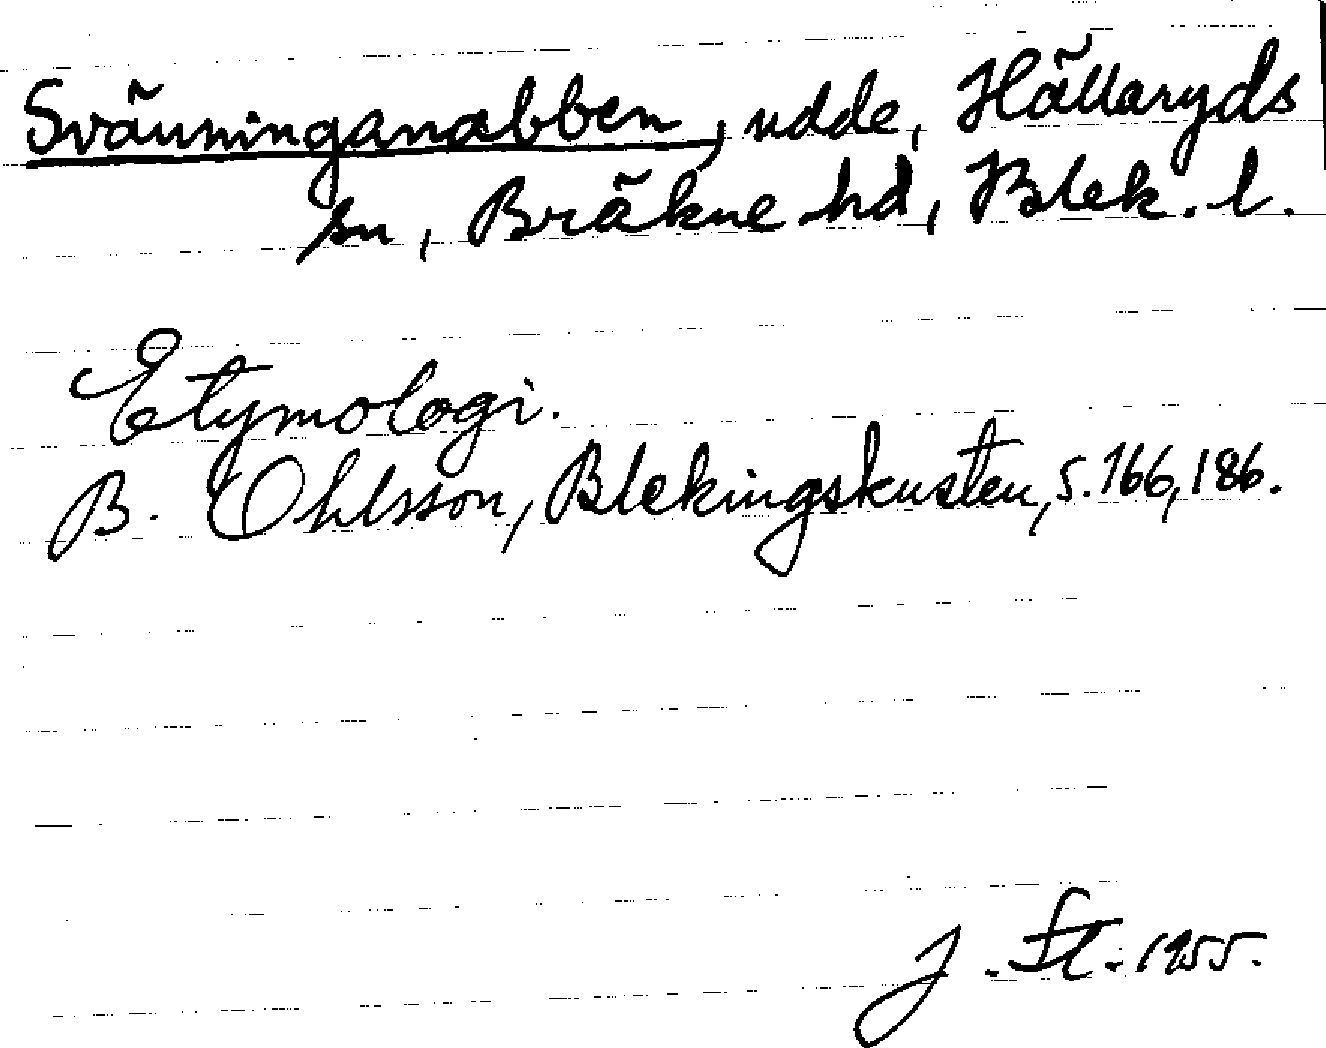 Svänninganabben, udde, Hällaryds
sn, Bräkne hd, Blek. l.
Etymologi.
B. Ohlsson, Blekingskusten, s. 166, 186.
J. Fl. 1955.